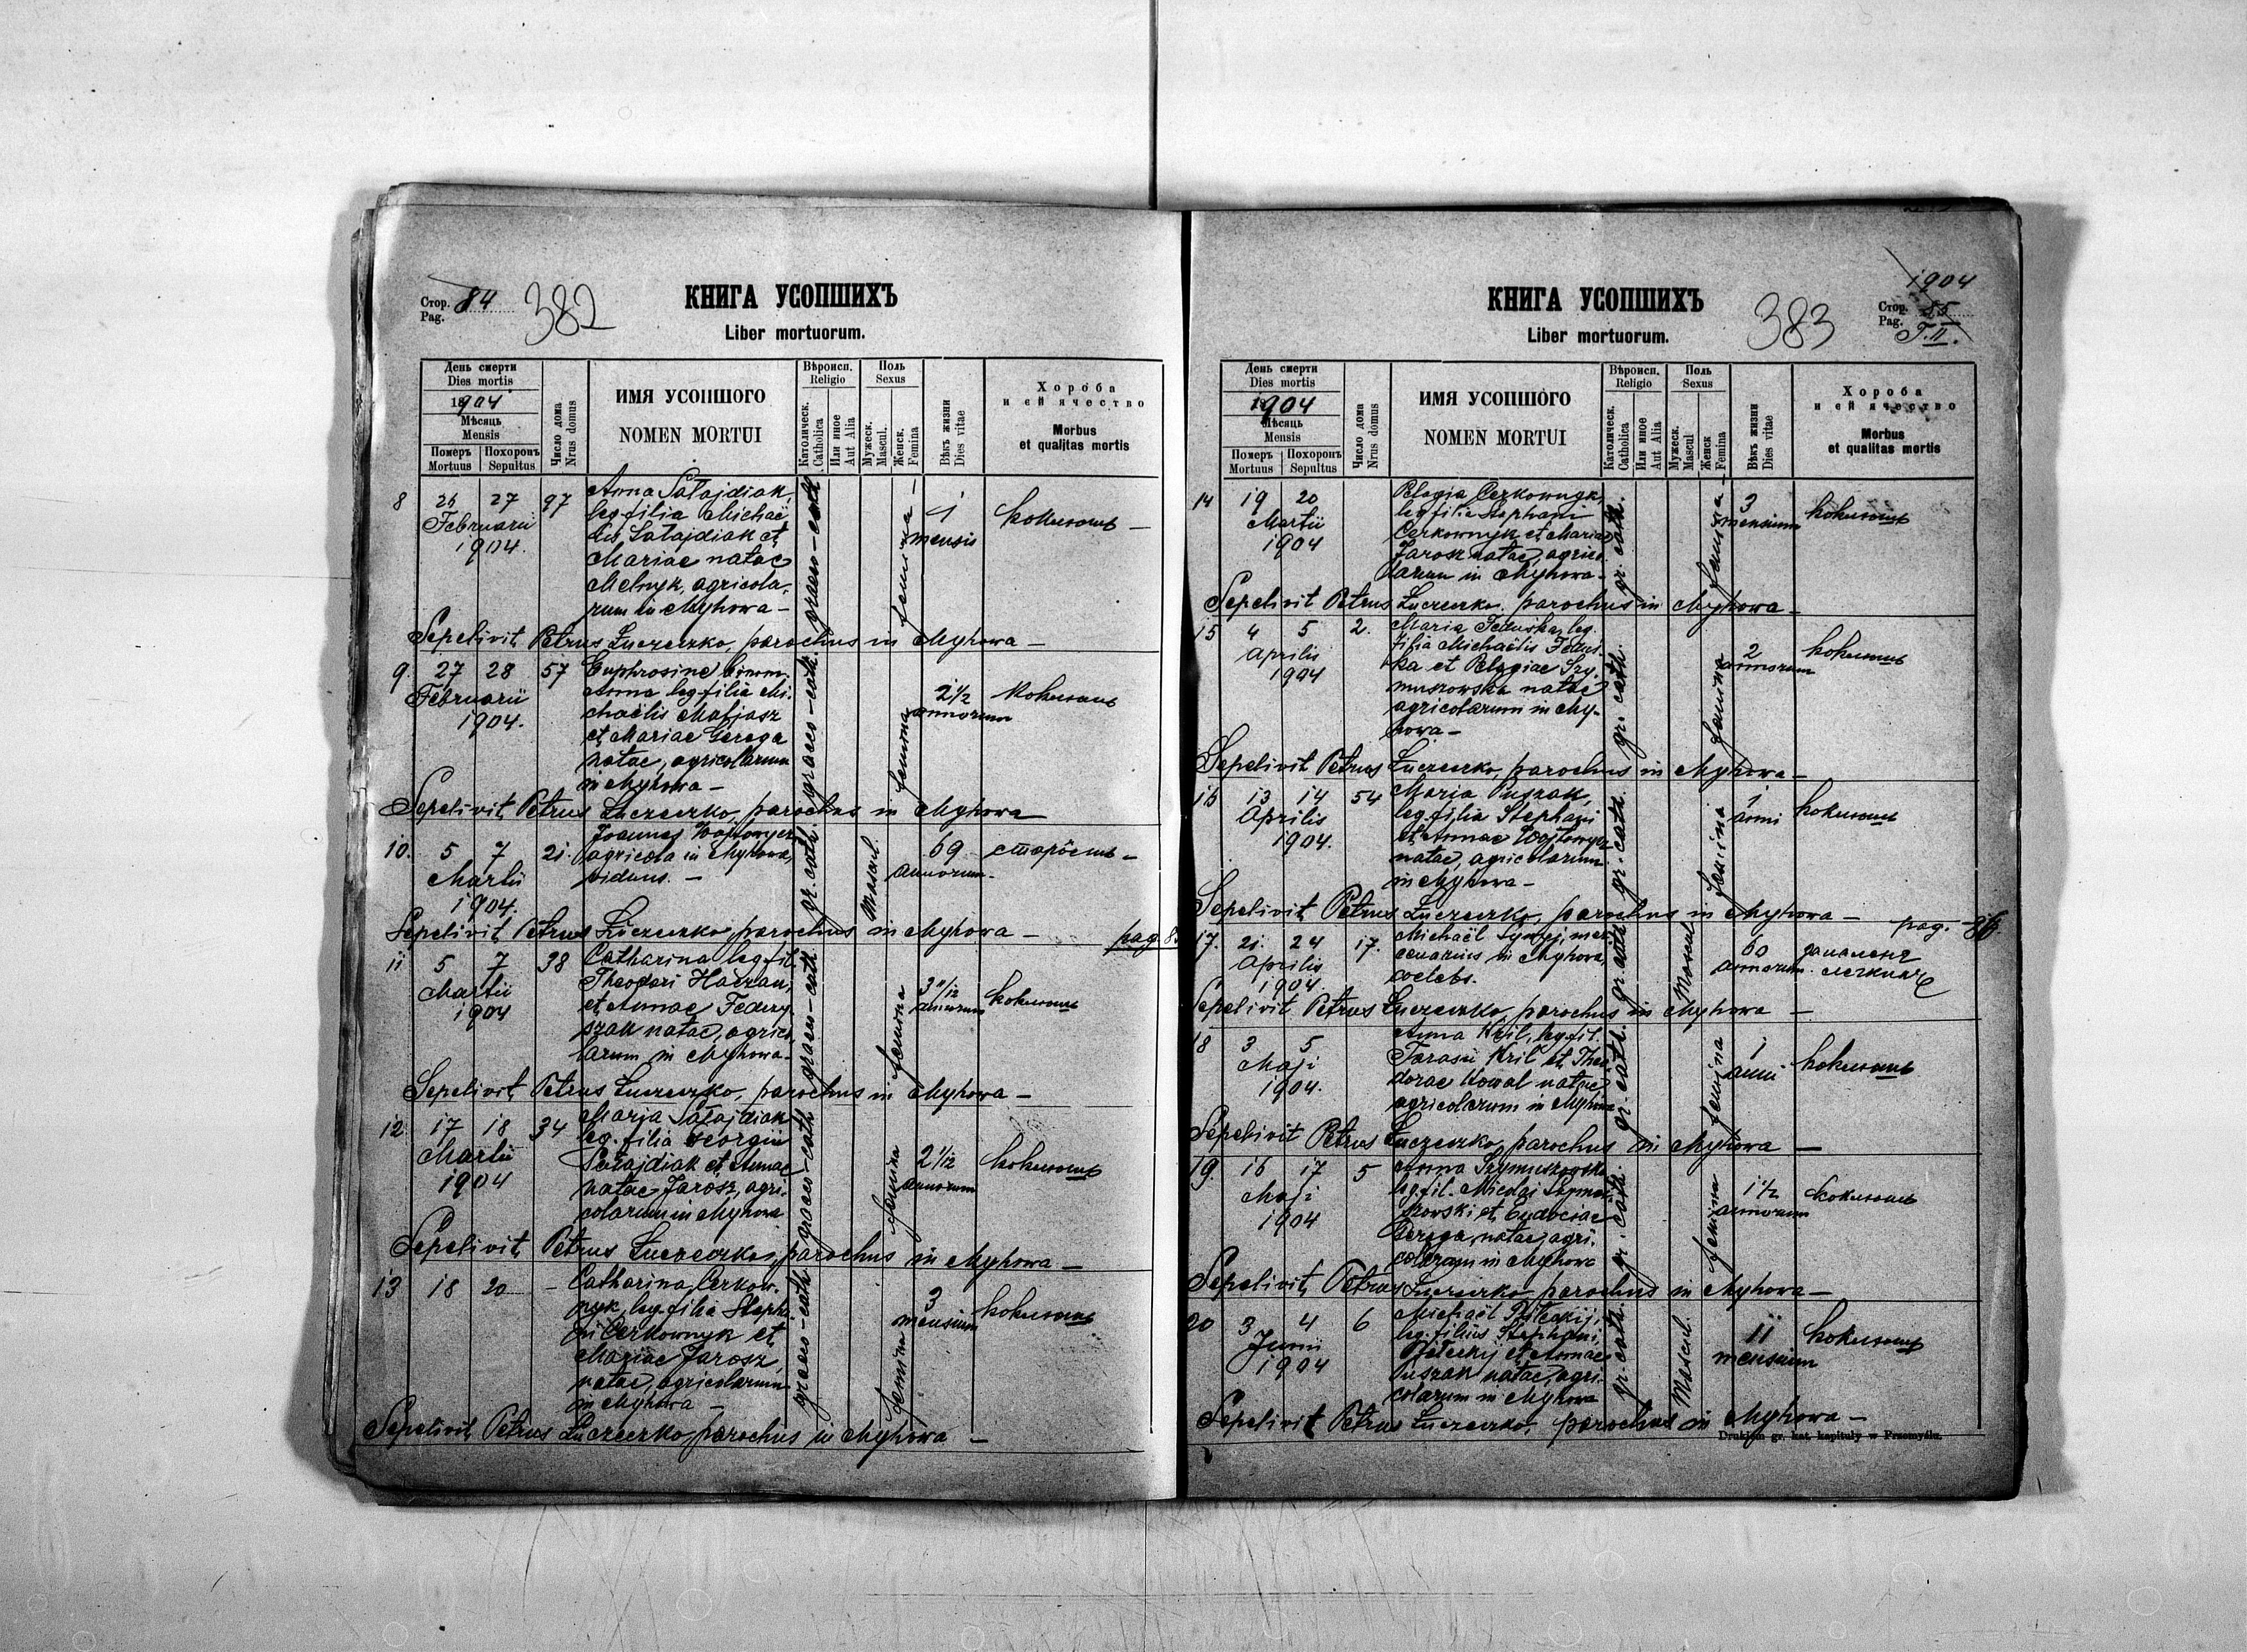 Стор. 84
Pag.
382
КНИГА УСОПШИХЪ
Liber mortuorum.
День смерти
Dies mortis
1904
Мѣсяць
Mensis
Померъ Mortuus
Похоронъ Sepultus
Число дома
Nrus domus
ИМЯ УСОПШОГО
NOMEN MORTUI
Вѣроисп.
Religio
Католическ.
Catholica
Или иное
Aut Alia
Поль
Sexus
Мужеск.
Mascul.
Женск.
Femina
Вѣкъ жизни
Dies vitae
Хороба
и єй ячество
Morbus
et qualitas mortis
8 26 27 97 Anna Satajdiak,
Februarii leg. filia Michaë
1904. lis Satajdiak et
Mariae natae
Melnyk, agricola-
rum in Myhowa –
graeco-cath. femina 1 mensis кокишть –
Sepelivit Petrus Łuczeczko, parochus in Myhowa –
9. 27 28 57 Euphrosine binom.
Februarii Anna leg. filia Mi-
1904. chaëlis Matjasz
et Mariae Gerega
natae, agricolarum
in Myhowa –
graeco-cath. femina 2 1/2 annorum кокишть
Sepelivit Petrus Łuczeczko, parochus in Myhowa
10. 5 7 21. Joannes Wojtowycz
Martii agricola in Myhowa,
1904. viduus. –
gr. cath. Mascul. 69 annorum – старôсть –
Sepelivit Petrus Łuczeczko, parochus in Myhowa –
pag. 8
11 5 7 38 Catharina leg. fil.
Martii Theodori Haczan,
1904 et Annae Fedory-
szak natae, agrico-
larum in Myhowa –
graeco-cath. femina 3 11/12 annorum кокишть
Sepelivit Petrus Łuczeczko, parochus in Myhowa –
12 17 18 34 Maria Satajdiak
Martii leg. filia Georgii
1904 Satajdiak et Annae
natae Jarosz, agri-
colarum in Myhowa
graeco-cath. femina 2 1/12 annorum кокишть
Sepelivit Petrus Łuczeczko, parochus in Myhowa –
13 18 20 – Catharina Cerkow-
nyk, leg. filia Stepha-
ni Cerkownyk et
Mariae Jarosz,
natae, agricolarum
in Myhowa –
graeco-cath. femina 3 mensium кокишть
Sepelivit Petrus Łuczeczko, parochus in Myhowa –
1904
Стор. 85
Pag.
T. II.
383
КНИГА УСОПШИХЪ
Liber mortuorum.
День смерти
Dies mortis
1904
Мѣсяць
Mensis
Померъ Mortuus
Похоронъ Sepultus
Число дома
Nrus domus
ИМЯ УСОПШОГО
NOMEN MORTUI
Вѣроисп.
Religio
Католическ.
Catholica
Или иное
Aut Alia
Поль
Sexus
Мужеск.
Mascul
Женск
Femina
Вѣкъ жизни
Dies vitae
Хороба
и єй ячество
Morbus
et qualitas mortis
14 19 20 Pelagia Cerkownyk,
Martii leg. filia Stephani
1904 Cerkownyk et Mariae
Jarosz natae, agrico-
larum in Myhowa –
gr. cath. femina 3 mensium кокишть
Sepelivit Petrus Łuczeczko. parochus in Myhowa –
15 4 5 2. Maria Feduska, leg.
Aprilis filia Michaëlis Fedus-
1904 ka et Pelagiae Szy-
muszowska natae
agricolarum in My-
howa –
gr. cath. femina 2 annorum кокишть
Sepelivit Petrus Łuczeczko, parochus in Myhowa –
16 13 14 54 Maria Puszak,
Aprilis leg. filia Stephani
1904. et Annae Wojtowycz
natae, agricolarum
in Myhowa –
gr. cath. femina 1 anni кокишть
Sepelivit Petrus Łuczeczko, parochus in Myhowa –
pag. 86
17. 21. 24 17. Michaël
Aprilis cenarius in Myhowa,
1904 coelebs.
gr. cath. Mascul. 60 annorum. запаленє легкихъ
Sepelivit Petrus Łuczeczko, parochus in Myhowa –
18 3 5 Anna Kril, leg. fil.
Maji Tarasii Kril et Theo-
1904. dorae Kowal natae
agricolarum in Myhowa
gr. cath. femina 1 anni кокишть
Sepelivit Petrus Łuczeczko, parochus in Myhowa –
19. 16 17 5 Anna Szymuszowska
Maji leg. fil. Nicolai Szymu-
1904 szowski et Eudociae
Gerega natae, agri-
colarum in Myhowa
gr. cath. femina 1 1/2 annorum кокишть
Sepelivit Petrus Łuczeczko, parochus in Myhowa –
20 3 4 6 Michaël Piłeckij,
Junii leg. filius Stephani
1904 Piłeckij et Annae
Puszak natae, agri-
colarum in Myhowa
gr. cath. Mascul. 11 mensium кокишть
Sepelivit Petrus Łuczeczko, parochus in Myhowa –
Drukiem gr. kat. kapituły w Przemyślu.